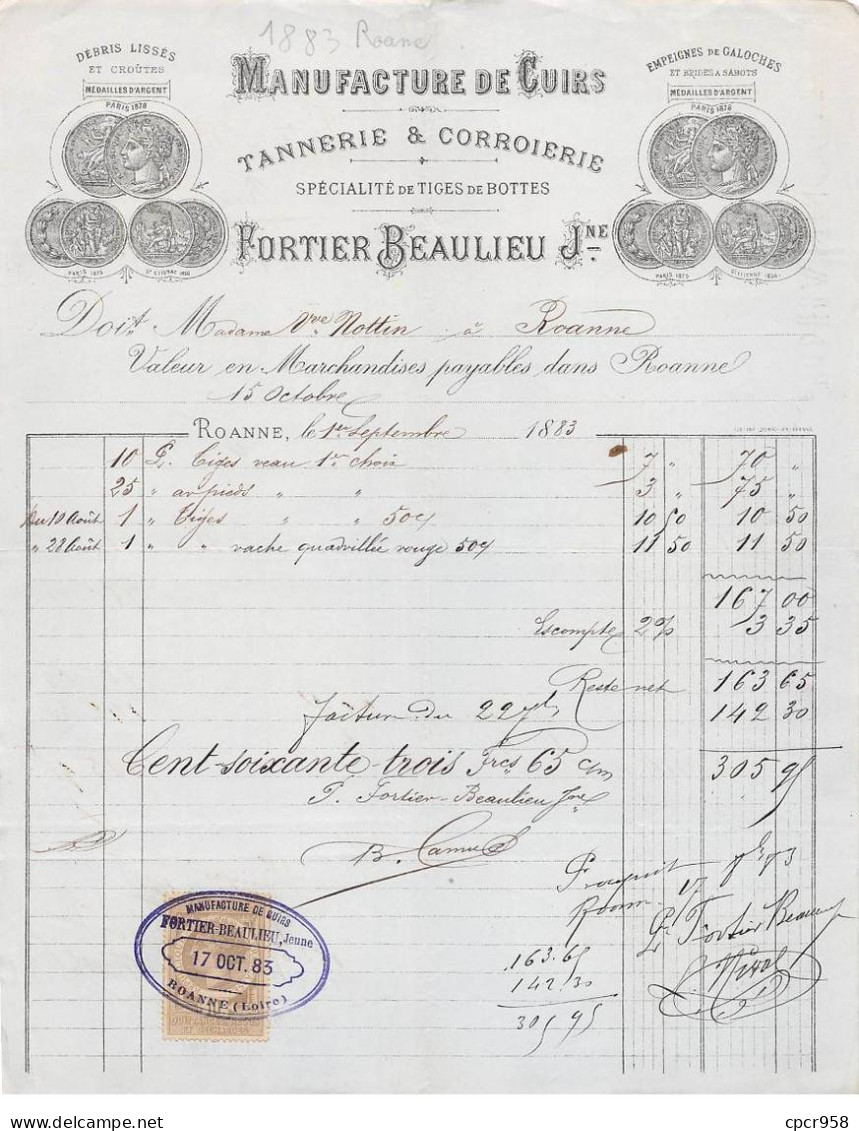 1883 Roane
DÉBRIS LISSÉS
ET CROÛTES
MÉDAILLES D'ARGENT
PARIS 1878
PARIS 1875
ST ETIENNE 1856
MANUFACTURE DE CUIRS
TANNERIE & CORROIERIE
SPÉCIALITÉ DE TIGES DE BOTTES
FORTIER BEAULIEU JNE
EMPEIGNES DE GALOCHES
ET BRIDES A SABOTS
MÉDAILLES D'ARGENT
PARIS 1878
PARIS 1875
ST ETIENNE 1856
Doit Madame Vve Nottin à Roanne
Valeur en Marchandises payables dans Roanne
15 Octobre
ROANNE, le 1er Septembre 1883
10 P. Tiges veau 1er choix 7 " 70 "
25 " av pieds " " 3 " 75 "
Du 10 Août 1 " Tiges " " 50c 10 50 10 50
" 28 Août 1 " " vache quadrillée rouge 50c 11 50 11 50
167 00
Escompte 2% 3 35
Reste net 163 65
facture du 22 142 30
Cent-soixante-trois Frcs 65 c/m 305 95
P. Fortier-Beaulieu Jne
B. Camus
Roanne 17
Pr Fortier Beaulieu
163.65
142.30
305 95
MANUFACTURE DE CUIRS
FORTIER-BEAULIEU, Jeune
17 OCT. 83
ROANNE (Loire)
QUITTANCES REÇUS
ET DÉCHARGES
cpcr958